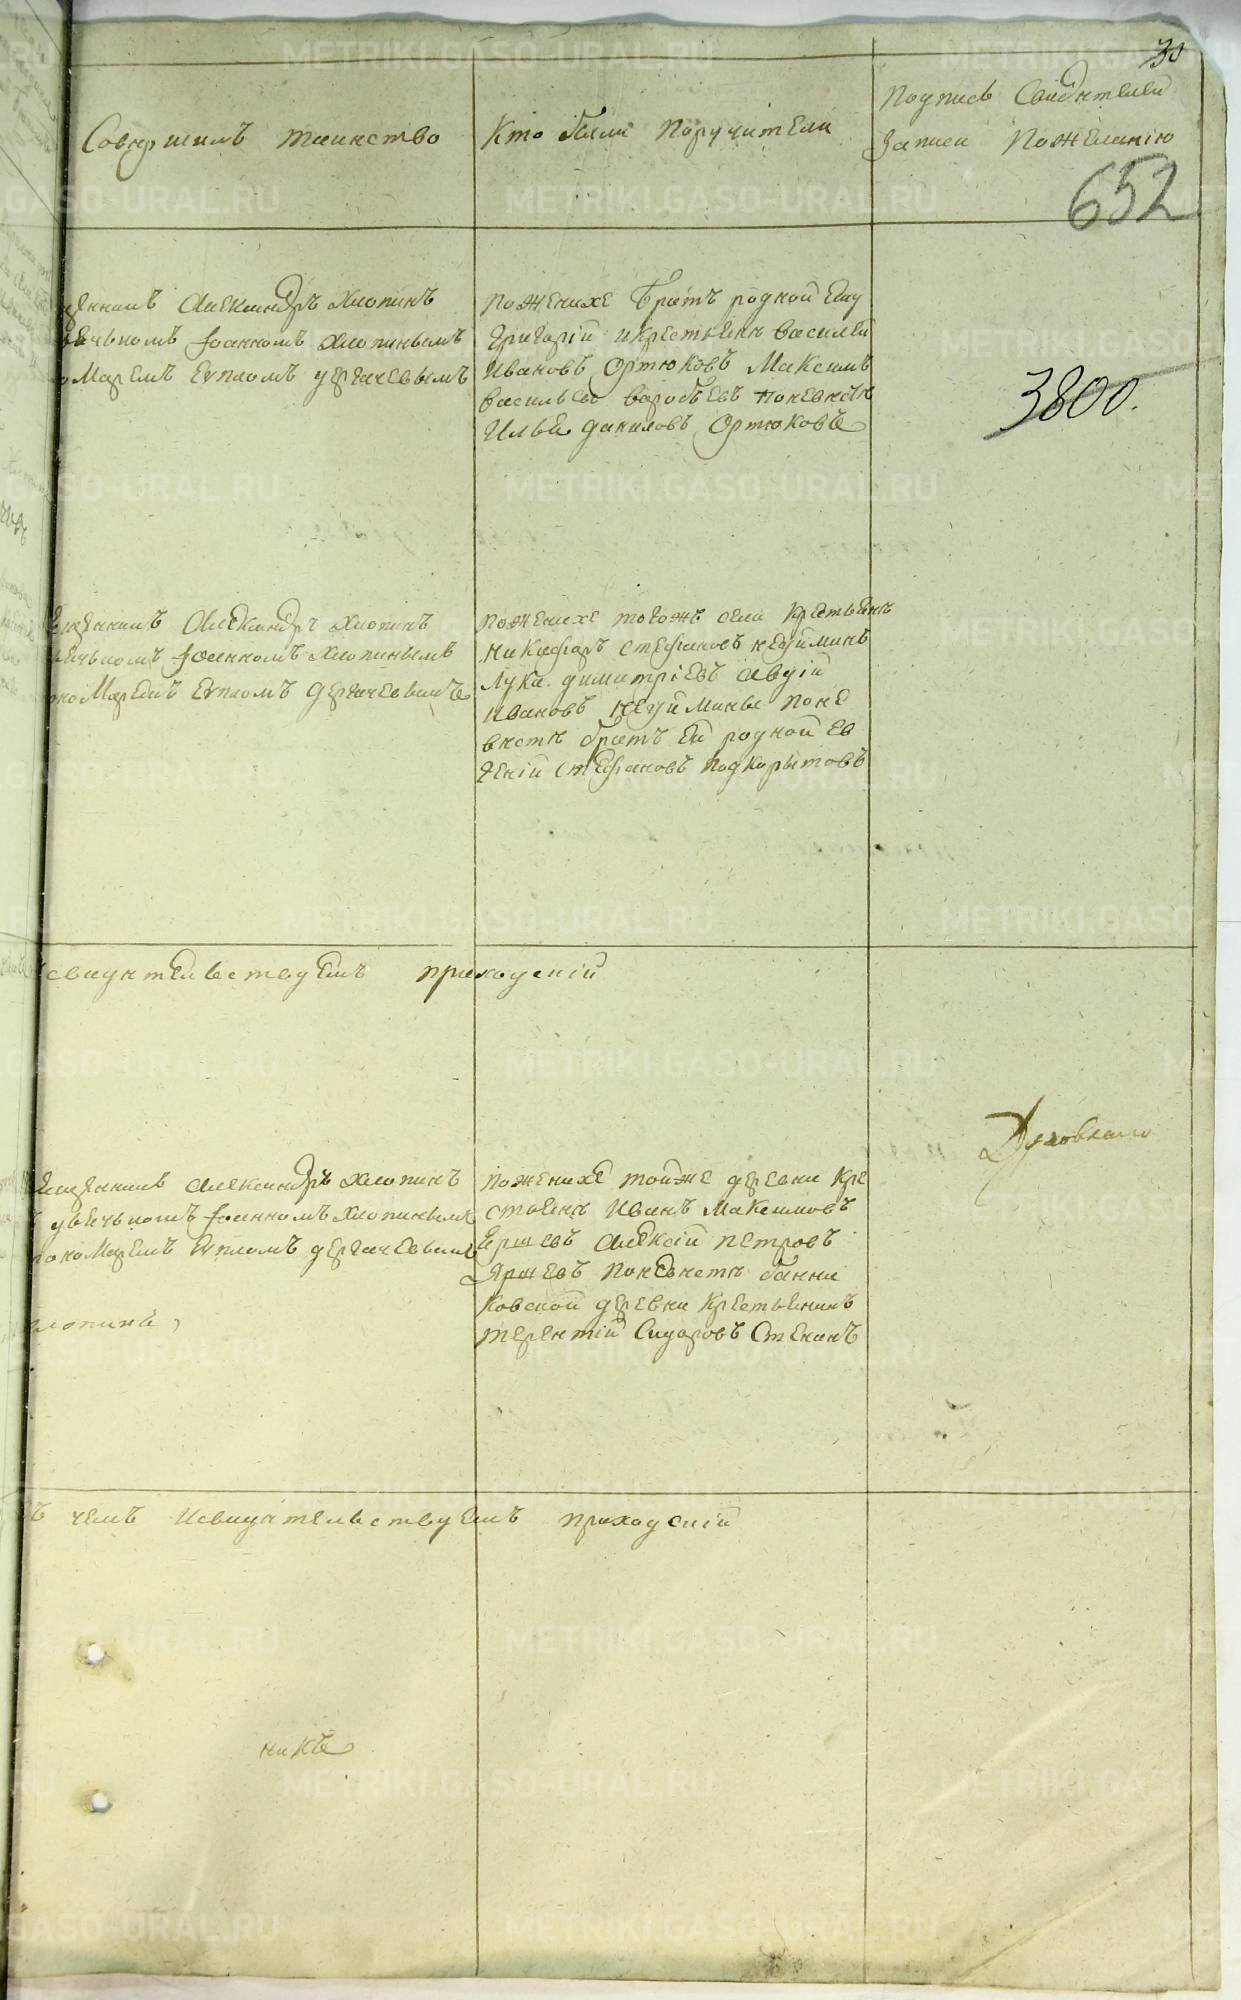 30
Совершилъ таинство
Кто были Поручители
Подпись Свидетелей
Записи По желанію
652
щенникъ Александръ Хлопинъ
Іоанномъ Хлопинымъ
Маремъ Евпломъ дергачевымъ
по женихе братъ родной ему
Григорій и крестьянъ василей
Ивановъ Ортюковъ Максимъ
васильевъ воробьевъ по невестѣ
Илья даниловъ Ортюковъ
3800.
щенникъ Александръ Хлопинъ
Іоанномъ Хлопинымъ
номаремъ Евпломъ дергачевымъ
по женихе тогожъ села крестьянъ
Никифаръ стефановъ неуйминъ
Лука димитріевъ
ивановъ неуймины по не
вестѣ братъ ей родной ев
геній стефановъ подкорытовъ
свидѣтельствуемъ приходскій
Духовнаго
щенникъ Александръ Хлопинъ
Іоанномъ Хлопинымъ
пономаремъ Евпломъ дергачевымъ
хлопинъ
по женихе тойже деревни кре
стьянъ Иванъ Максимовъ
Ершевъ алексій петровъ
Яршевъ по невестѣ банни
ковской деревни крестьянинъ
терентій Сидаровъ Стенинъ
чемъ и свидѣтельствуемъ приходскій
никъ
METRIKI.GASO-URAL.RU